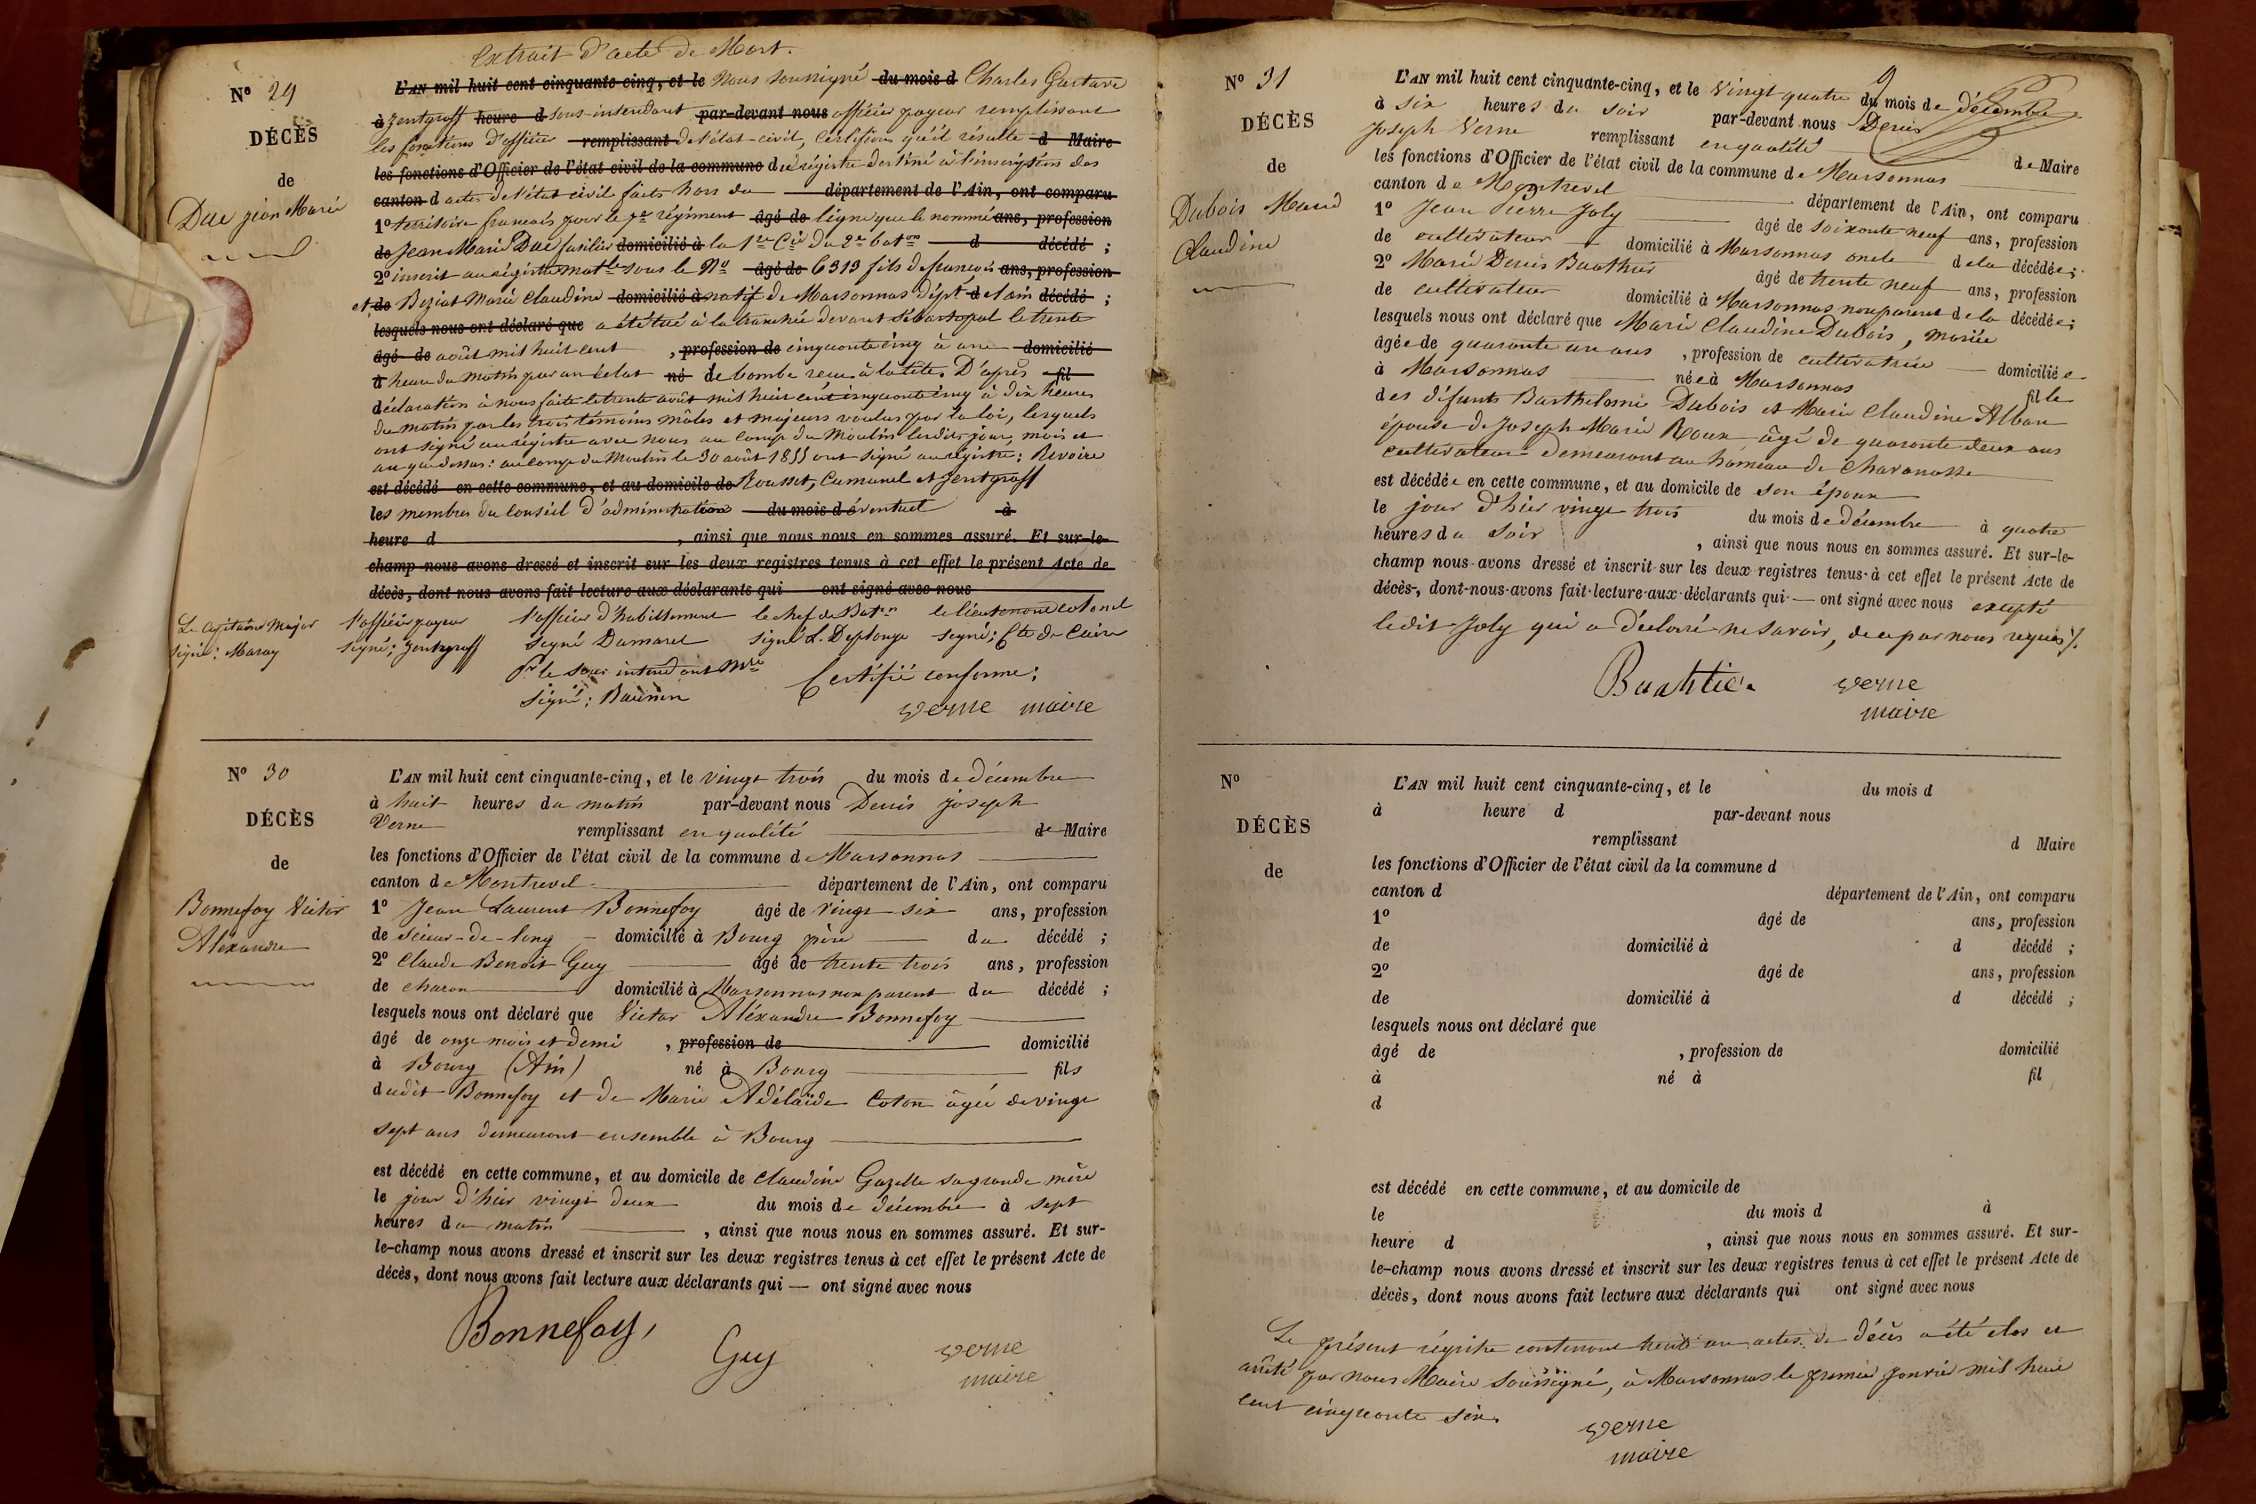 Extrait d'acte de Mort.
N° 29
DÉCÈS
de
Duc Jean Marie
L'AN mil huit cent cinquante-cinq, et le Nous soussigné du mois d Charles Gustave
à Zentgraff heure d sous-intendant par-devant nous officier payeur remplissant
les fonctions d'officier remplissant de l'état-civil, certifions qu'il résulte d Maire
les fonctions d'Officier de l'état civil de la commune du régistre destiné à l'inscription des
canton d actes de l'état civil faits hors du département de l'Ain, ont comparu
1° territoire français pour le 7e régiment âgé de ligne que le nommé ans, profession
de Jean Marie Duc fusilier domicilié à la 1re Cie du 2e baton d décédé ;
2° inscrit au régistre matle sous le N° âgé de 6313 fils de françois ans, profession
et de Beziat Marie Claudine domicilié à natif de Marsonnas dépt d el ain décédé ;
lesquels nous ont déclaré que a été tué à la tranchée devant Sébastopol le trente
âgé de août mil huit cent , profession de cinquante cinq à une domicilié
à heure du matin par un éclat né de bombe reçu à la tête. D'après fil
déclaration à nous faite le trente août mil huit cent cinquante cinq à dix heures
du matin par les trois témoins mâles et majeurs voulus par la loi, lesquels
ont signé au régistre avec nous au camp du Moulin lesdits jour, mois et
an que dessus : au camp du Moulin le 30 août 1855 ont signé au régistre : Revoire
est décédé en cette commune, et au domicile de Rousset, Cumunel et Zentgraff
les membres du Conseil d'administration du mois d éventuel à
heure d , ainsi que nous nous en sommes assuré. Et sur-le-
champ nous avons dressé et inscrit sur les deux registres tenus à cet effet le présent Acte de
décès, dont nous avons fait lecture aux déclarants qui ont signé avec nous
Le Capitaine Major l'officier payeur l'officier d'habillement le chef de Baton le lieutenant colonel
signé : Maray signé : Zentgraff signé Damarel signé L. Deplonge signé : Cte de Caira
Pr le sous intendant Mre Certifié conforme :
signé : Baumin
verne maire
N° 30
DÉCÈS
de
Bonnefoy Victor
Alexandre
L'AN mil huit cent cinquante-cinq, et le vingt trois du mois de décembre
à huit heures du matin par-devant nous Denis Joseph
Verne remplissant en qualité de Maire
les fonctions d'Officier de l'état civil de la commune de Marsonnas
canton de Montrevel département de l'Ain, ont comparu
1° Jean Laurent Bonnefoy âgé de vingt six ans, profession
de scieur-de-long domicilié à Bourg père du décédé ;
2° Claude Benoit Guy âgé de trente trois ans, profession
de charon domicilié à Marsonnas non parent du décédé ;
lesquels nous ont déclaré que Victor Aléxandre Bonnefoy
âgé de onze mois et demi , profession de domicilié
à Bourg (Ain) né à Bourg fils
dudit Bonnefoy et de Marie Adélaïde Coton âgée de vingt
sept ans demeurant ensemble à Bourg
est décédé en cette commune, et au domicile de Claudine Gazelle sa grande mère
le jour d'hier vingt deux du mois de décembre à sept
heures du matin , ainsi que nous nous en sommes assuré. Et sur-
le-champ nous avons dressé et inscrit sur les deux registres tenus à cet effet le présent Acte de
décès, dont nous avons fait lecture aux déclarants qui — ont signé avec nous
Bonnefoy,
Guy
verne
maire
9
N° 31
DÉCÈS
de
Dubois Marie
Claudine
L'AN mil huit cent cinquante-cinq, et le vingt quatre du mois de décembre
à six heures du soir par-devant nous Denis
Joseph Verne remplissant en qualité de Maire
les fonctions d'Officier de l'état civil de la commune de Marsonnas
canton de Montrevel département de l'Ain, ont comparu
1° Jean Pierre Joly âgé de soixante neuf ans, profession
de cultivateur domicilié à Marsonnas oncle de la décédée ;
2° Marie Denis Buathier âgé de trente neuf ans, profession
de cultivateur domicilié à Marsonnas non parent de la décédée ;
lesquels nous ont déclaré que Marie Claudine Dubois, mariée
âgée de quarante un ans , profession de cultivatrice domiciliée
à Marsonnas née à Marsonnas fille
des défunts Barthelomi Dubois et Marie Claudine Alban
épouse de Joseph Marie Roux âgé de quarante deux ans
cultivateur demeurant au hameau de Charanosse
est décédée en cette commune, et au domicile de son époux
le jour d'hier vingt trois du mois de décembre à quatre
heures du soir , ainsi que nous nous en sommes assuré. Et sur-le-
champ nous avons dressé et inscrit sur les deux registres tenus à cet effet le présent Acte de
décès, dont nous avons fait lecture aux déclarants qui — ont signé avec nous excepté
ledit Joly qui a déclaré ne savoir, de ce par nous requis /.
Buathier verne
maire
N°
DÉCÈS
de
L'AN mil huit cent cinquante-cinq, et le du mois d
à heure d par-devant nous
remplissant d Maire
les fonctions d'Officier de l'état civil de la commune d
canton d département de l'Ain, ont comparu
1° âgé de ans, profession
de domicilié à d décédé ;
2° âgé de ans, profession
de domicilié à d décédé ;
lesquels nous ont déclaré que
âgé de , profession de domicilié
à né à fil
d
est décédé en cette commune, et au domicile de
le du mois d à
heure d , ainsi que nous nous en sommes assuré. Et sur-
le-champ nous avons dressé et inscrit sur les deux registres tenus à cet effet le présent Acte de
décès, dont nous avons fait lecture aux déclarants qui ont signé avec nous
Le présent régistre contenant trente un actes de décès a été clos et
arrêté par nous Maire soussigné, à Marsonnas le premier janvier mil huit
cent cinquante six.
verne
maire